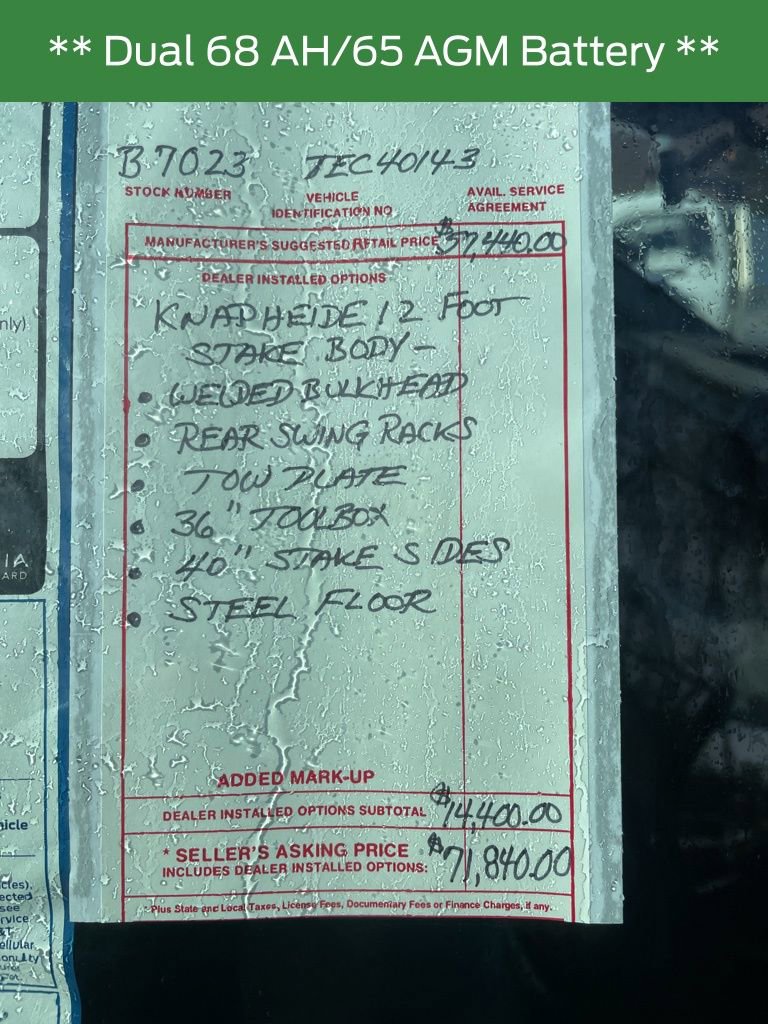 ** Dual 68 AH/65 AGM Battery **
B7023 TEC40143
STOCK NUMBER
VEHICLE
IDENTIFICATION NO
AVAIL. SERVICE
AGREEMENT
MANUFACTURER'S SUGGESTED RETAIL PRICE $57,440.00
DEALER INSTALLED OPTIONS
KNAPHEIDE 12 FOOT
STAKE BODY -
• WELDED BULKHEAD
• REAR SWING RACKS
• TOW PLATE
• 36" TOOLBOX
• 40" STAKE SIDES
• STEEL FLOOR
ADDED MARK-UP
DEALER INSTALLED OPTIONS SUBTOTAL $14,400.00
* SELLER'S ASKING PRICE
INCLUDES DEALER INSTALLED OPTIONS: $71,840.00
Plus State and Local Taxes, License Fees, Documentary Fees or Finance Charges, if any.
nly)
IA
ARD
hicle
cles),
ected
see
rvice
&T
ellular